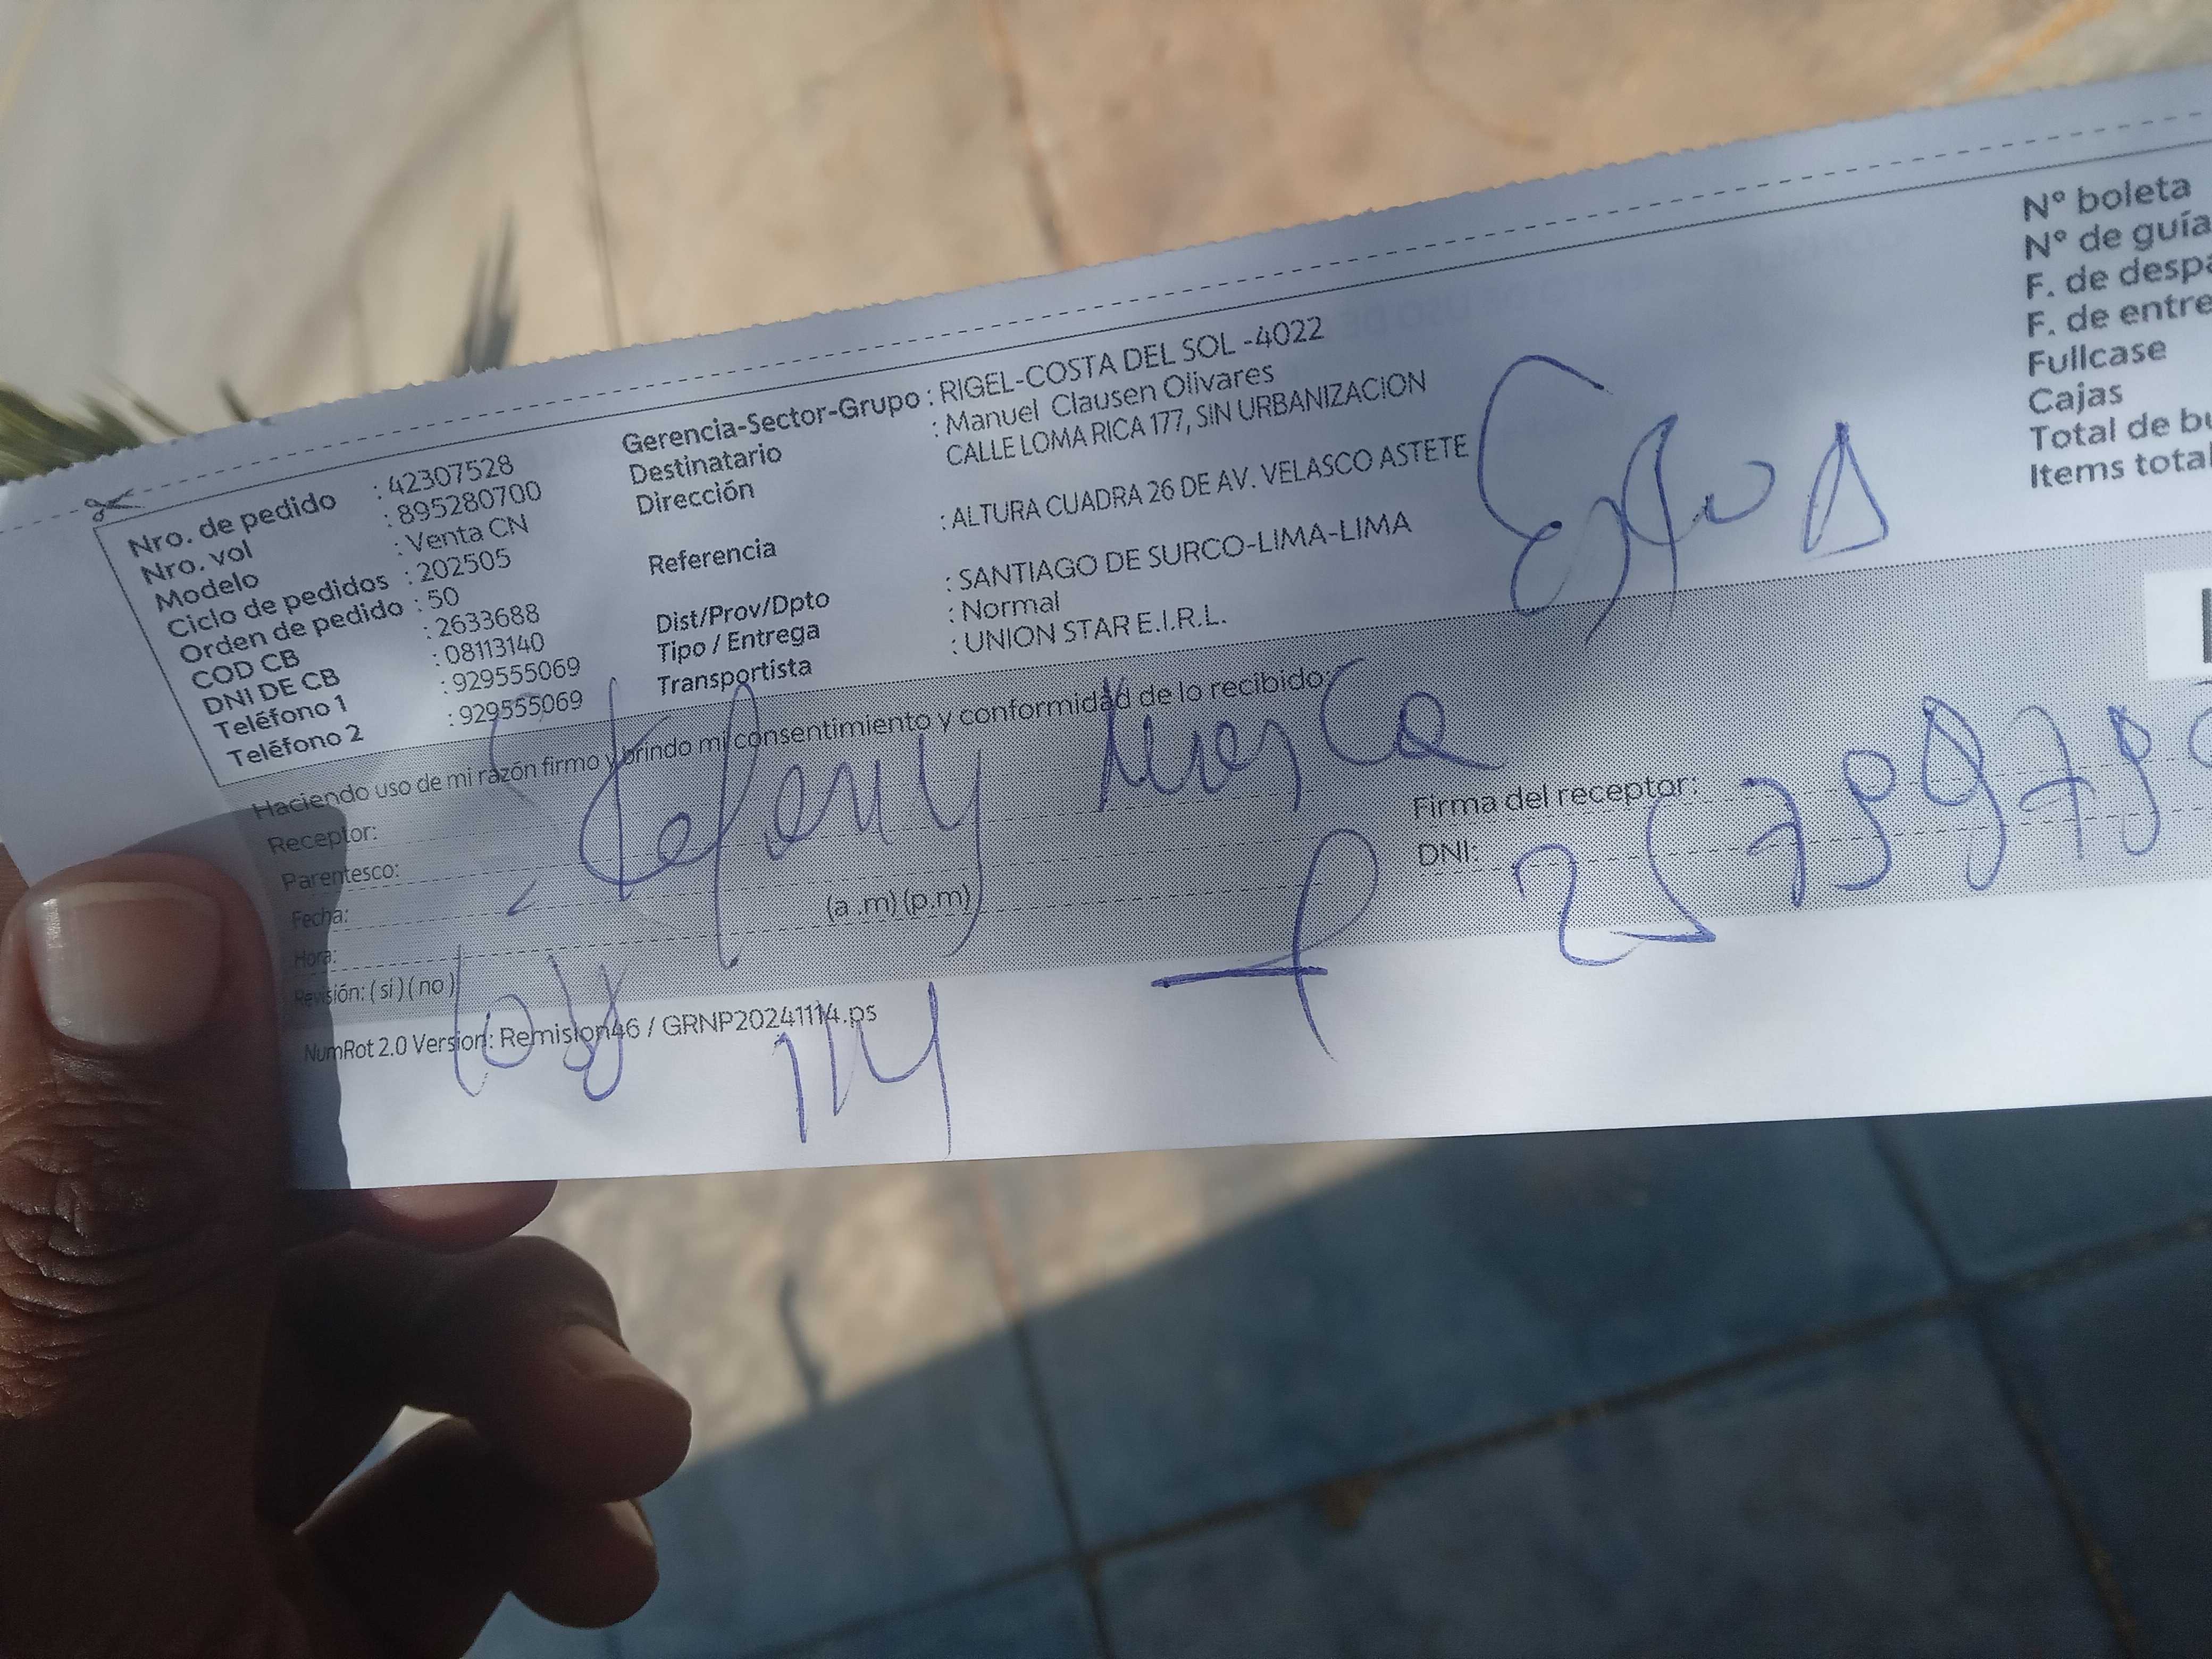 Nro. de pedido : 42307528
Nro. vol : 895280700
Modelo : Venta CN
Ciclo de pedidos : 202505
Orden de pedido : 50
COD CB : 2633688
DNI DE CB : 08113140
Teléfono 1 : 929555069
Teléfono 2 : 929555069
Gerencia-Sector-Grupo : RIGEL-COSTA DEL SOL -4022
Destinatario : Manuel Clausen Olivares
Dirección CALLE LOMA RICA 177, SIN URBANIZACION
Referencia : ALTURA CUADRA 26 DE AV. VELASCO ASTETE
Dist/Prov/Dpto : SANTIAGO DE SURCO-LIMA-LIMA
Tipo / Entrega : Normal
Transportista : UNION STAR E.I.R.L.
N° boleta
N° de guía
F. de despa
F. de entre
Fullcase
Cajas
Total de bu
Items total
Haciendo uso de mi razón firmo y brindo mi consentimiento y conformidad de lo recibido:
Receptor:
Parentesco:
Fecha:
Hora: (a .m) (p.m)
Revisión: ( si ) ( no )
Firma del receptor:
DNI:
NumRot 2.0 Version: Remision46 / GRNP20241114.ps